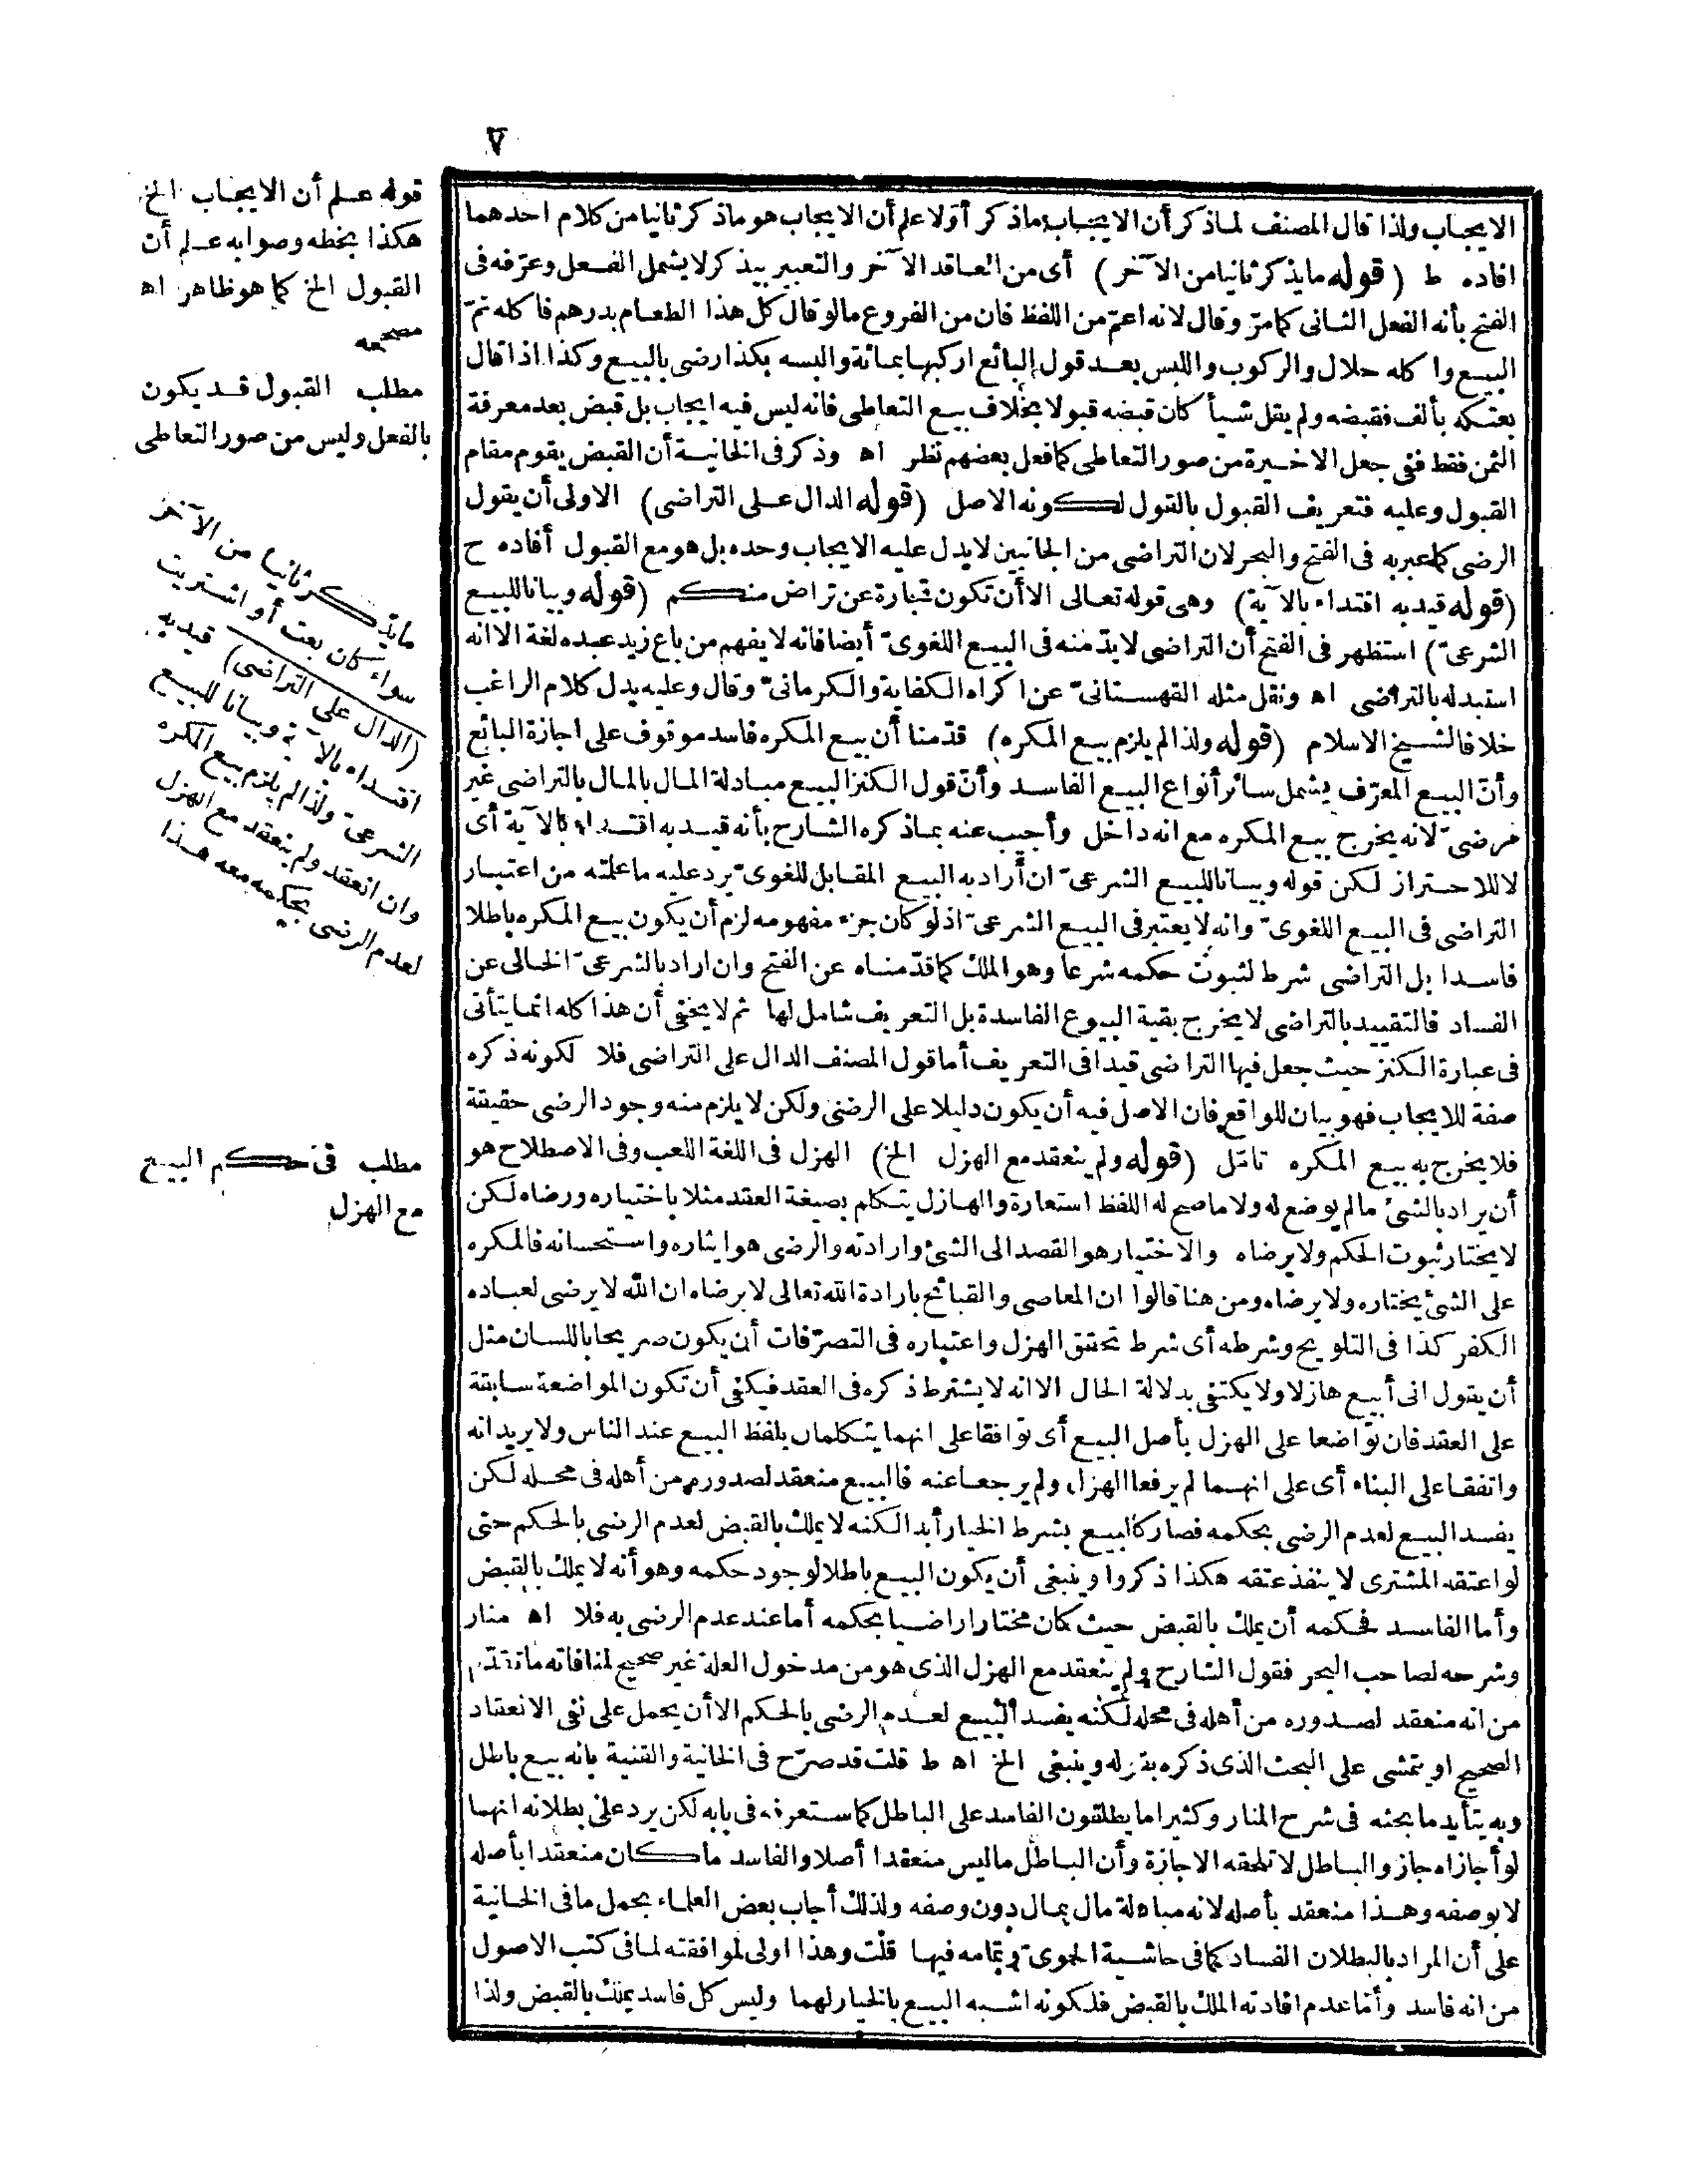 ٧
الايجاب ولذا قال المصنف لماذكر أن الايجاب ماذكر أوّلا علم أن الايجاب هو ماذكر ثانيا من كلام احدهما
افاده ط (قوله مايذكر ثانيا من الآخر) أى من العاقد الآخر والتعبير بيذكر لا يشمل الفعل وعرّفه فى
الفتح بأنه الفعل الثانى كمامرّ وقال لانه اعمّ من اللفظ فان من الفروع مالو قال كل هذا الطعام بدرهم فاكله تمّ
البيع واكله حلال والركوب واللبس بعد قول البائع اركبها بمائة والبسه بكذا رضى بالبيع وكذا اذا قال
بعتكه بألف فقبضه ولم يقل شيأ كان قبضه قبولا بخلاف بيع التعاطى فانه ليس فيه ايجاب بل قبض بعد معرفة
الثمن فقط ففى جعل الاخيرة من صور التعاطى كما فعل بعضهم نظر اه وذكر فى الخانية أن القبض يقوم مقام
القبول وعليه فتعريف القبول بالقول لكونه الاصل (قوله الدال على التراضى) الاولى أن يقول
الرضى كما عبر به فى الفتح والبحر لان التراضى من الجانبين لايدل عليه الايجاب وحده بل هو مع القبول أفاده ح
(قوله قيد به اقتداء بالآية) وهى قوله تعالى الا أن تكون تجارة عن تراض منكم (قوله وبيانا للبيع
الشرعىّ) استظهر فى الفتح أن التراضى لابدّ منه فى البيع اللغوىّ أيضا فانه لا يفهم من باع زيد عبده لغة الا انه
استبدله بالتراضى اه ونقل مثله القهستانىّ عن اكراه الكفاية والكرمانىّ وقال وعليه يدل كلام الراغب
خلافا لشيخ الاسلام (قوله ولذا لم يلزم بيع المكره) قدّمنا أن بيع المكره فاسد موقوف على اجازة البائع
وأن البيع المعرّف يشمل سائر أنواع البيع الفاسد وأنّ قول الكنز البيع مبادلة المال بالمال بالتراضى غير
مرضىّ لانه يخرج بيع المكره مع انه داخل وأجيب عنه بماذكره الشارح بأنه قيد به اقتداء بالآية أى
لا للاحتراز لكن قوله وبيانا للبيع الشرعىّ ان أراد به البيع المقابل للغوىّ يرد عليه ما علمته من اعتبار
التراضى فى البيع اللغوىّ وانه لا يعتبر فى البيع الشرعىّ اذ لو كان جزء مفهومه لزم أن يكون بيع المكره باطلا
فاسدا بل التراضى شرط لثبوت حكمه شرعا وهو الملك كما قدّمناه عن الفتح وان اراد بالشرعىّ الخالى عن
الفساد فالتقييد بالتراضى لا يخرج بقية البيوع الفاسدة بل التعريف شامل لها ثم لا يخفى أن هذا كله انما يتأتى
فى عبارة الكنز حيث جعل فيها التراضى قيدا فى التعريف أما قول المصنف الدال على التراضى فلا لكونه ذكره
صفة للايجاب فهو بيان للواقع فان الاصل فيه أن يكون دليلا على الرضى ولكن لا يلزم منه وجود الرضى حقيقة
فلا يخرج به بيع المكره تامّل (قوله ولم ينعقد مع الهزل الخ) الهزل فى اللغة اللعب وفى الاصطلاح هو
أن يراد بالشئ مالم يوضع له ولا ماصح له اللفظ استعارة والهازل يتكلم بصيغة العقد مثلا باختياره ورضاه لكن
لا يختار ثبوت الحكم ولا يرضاه والاختيار هو القصد الى الشئ وارادته والرضى هو ايثاره واستحسانه فالمكره
على الشئ يختاره ولا يرضاه ومن هنا قالوا ان المعاصى والقبائح بارادة الله تعالى لا برضاه ان الله لا يرضى لعباده
الكفر كذا فى التلويح وشرطه أى شرط تحقق الهزل واعتباره فى التصرّفات أن يكون صريحا باللسان مثل
أن يقول انى أبيع هازلا ولا يكتفى بدلالة الحال الا انه لا يشترط ذكره فى العقد فيكفى أن تكون المواضعة سابقة
على العقد فان تواضعا على الهزل بأصل البيع أى توافقا على انهما يتكلمان بلفظ البيع عند الناس ولا يريدانه
واتفقا على البناء أى على انهما لم يرفعا الهزل ولم يرجعا عنه فالبيع منعقد لصدوره من أهله فى محله لكن
يفسد البيع لعدم الرضى بحكمه فصار كالبيع بشرط الخيار أبدا لكنه لا يملك بالقبض لعدم الرضى بالحكم حتى
لو اعتقه المشترى لا ينفذ عتقه هكذا ذكروا وينبغى أن يكون البيع باطلا لوجود حكمه وهو أنه لا يملك بالقبض
وأما الفاسد فحكمه أن يملك بالقبض حيث كان مختارا راضيا بحكمه أما عند عدم الرضى به فلا اه منار
وشرحه لصاحب البحر فقول الشارح ولم ينعقد مع الهزل الذى هو من مدخول العلة غير صحيح لمنافاته ما تقدّم
من انه منعقد لصدوره من أهله فى محله لكنه يفسد البيع لعدم الرضى بالحكم الا أن يحمل على نفى الانعقاد
الصحيح او يتمشى على البحث الذى ذكره بقوله وينبغى الخ اه ط قلت قد صرّح فى الخانية والقنية بانه بيع باطل
وبه يتأيد ما بحثه فى شرح المنار وكثيرا ما يطلقون الفاسد على الباطل كما ستعرفه فى بابه لكن يرد على بطلانه انهما
لو أجازاه جاز والباطل لا تلحقه الاجازة وأن الباطل ماليس منعقدا أصلا والفاسد ما كان منعقدا بأصله
لا بوصفه وهذا منعقد بأصله لانه مبادلة مال بمال دون وصفه ولذلك أجاب بعض العلماء بحمل ما فى الخانية
على أن المراد بالبطلان الفساد كما فى حاشية الحموىّ وتمامه فيها قلت وهذا اولى لموافقته لما فى كتب الاصول
من انه فاسد وأما عدم افادته الملك بالقبض فلكونه اشبه البيع بالخيار لهما وليس كل فاسد يملك بالقبض ولذا
قوله علم أن الايجاب الخ
هكذا بخطه وصوابه علم أن
القبول الخ كما هو ظاهر اه
مصححه
مطلب القبول قد يكون
بالفعل وليس من صور التعاطى
مايذكر ثانيا من الآخر
سواء كان بعت أو اشتريت
(الدال على التراضى) قيد به
اقتداء بالآية وبيانا للبيع
الشرعىّ ولذا لم يلزم بيع المكره
وان انعقد ولم ينعقد مع الهزل
لعدم الرضى بحكمه معه هذا
مطلب فى حكم البيع
مع الهزل